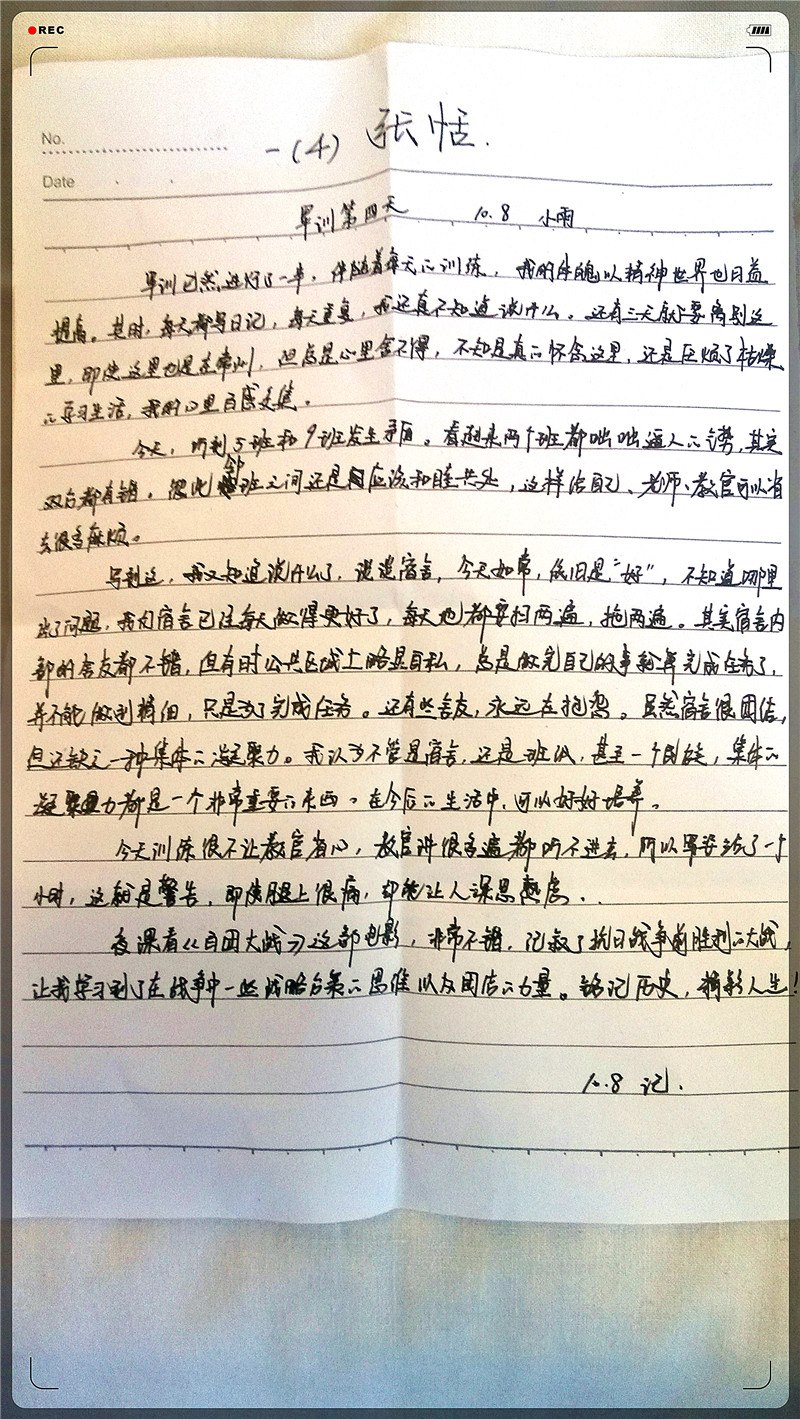 REC
No.
一(4) 张恬.
Date
军训第四天 10.8 小雨
军训已然进行了一半，伴随着每天的训练，我的体魄以精神世界也日益
提高。其时，每天都写日记，每天重复，我还真不知道说什么。还有三天就要离别这
里，即使这里也是在常州，但总是心里舍不得，不知是真的怀念这里，还是厌烦了枯燥
的学习生活，我的心里百感交集。
今天，听到5班和9班发生矛盾。看起来两个班都咄咄逼人的势，其实
双方都有错。彼此班之间还是应该和睦共处，这样给自己、老师、教官可以省
去很多麻烦。
写到这，我又知道说什么了，说说宿舍，今天如常，依旧是“好”，不知道哪里
出了问题，我们宿舍已经每天做得更好了，每天地都要扫两遍，拖两遍。其实宿舍内
部的舍友都不错，但有时公共区域上略显自私，总是做完自己的事就算完成任务了，
并不能做到精细，只是为了完成任务。还有些舍友，永远在抱怨。虽然宿舍很团结，
但还缺乏一种集体的凝聚力。我认为不管是宿舍，还是班级，甚至一个国家，集体的
凝聚力都是一个非常重要的东西。在今后的生活中，可以好好培养。
今天训练很不让教官省心，教官讲很多遍都听不进去，所以军姿站了一个
小时，这就是警告，即使腿上很痛，却能让人深思熟虑．
夜课看《百团大战》这部电影，非常不错，记叙了抗日战争前胜利的大战，
让我学习到了在战争中一些战略分类的思维以及团结的力量。铭记历史，精彩人生！
10.8 记.